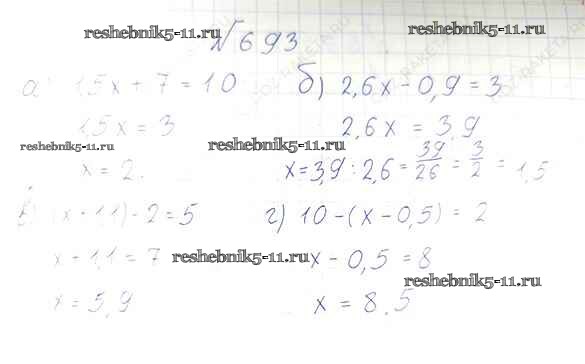 №693
а) 1,5x + 7 = 10
1,5x = 3
x = 2.
б) 2,6x - 0,9 = 3
2,6x = 3,9
x = 3,9 : 2,6 = 39/26 = 3/2 = 1,5
в) (x + 1,1) - 2 = 5
x + 1,1 = 7
x = 5,9
г) 10 - (x - 0,5) = 2
x - 0,5 = 8
x = 8,5
reshebnik5-11.ru
reshebnik5-11.ru
reshebnik5-11.ru
reshebnik5-11.ru
reshebnik5-11.ru
reshebnik5-11.ru